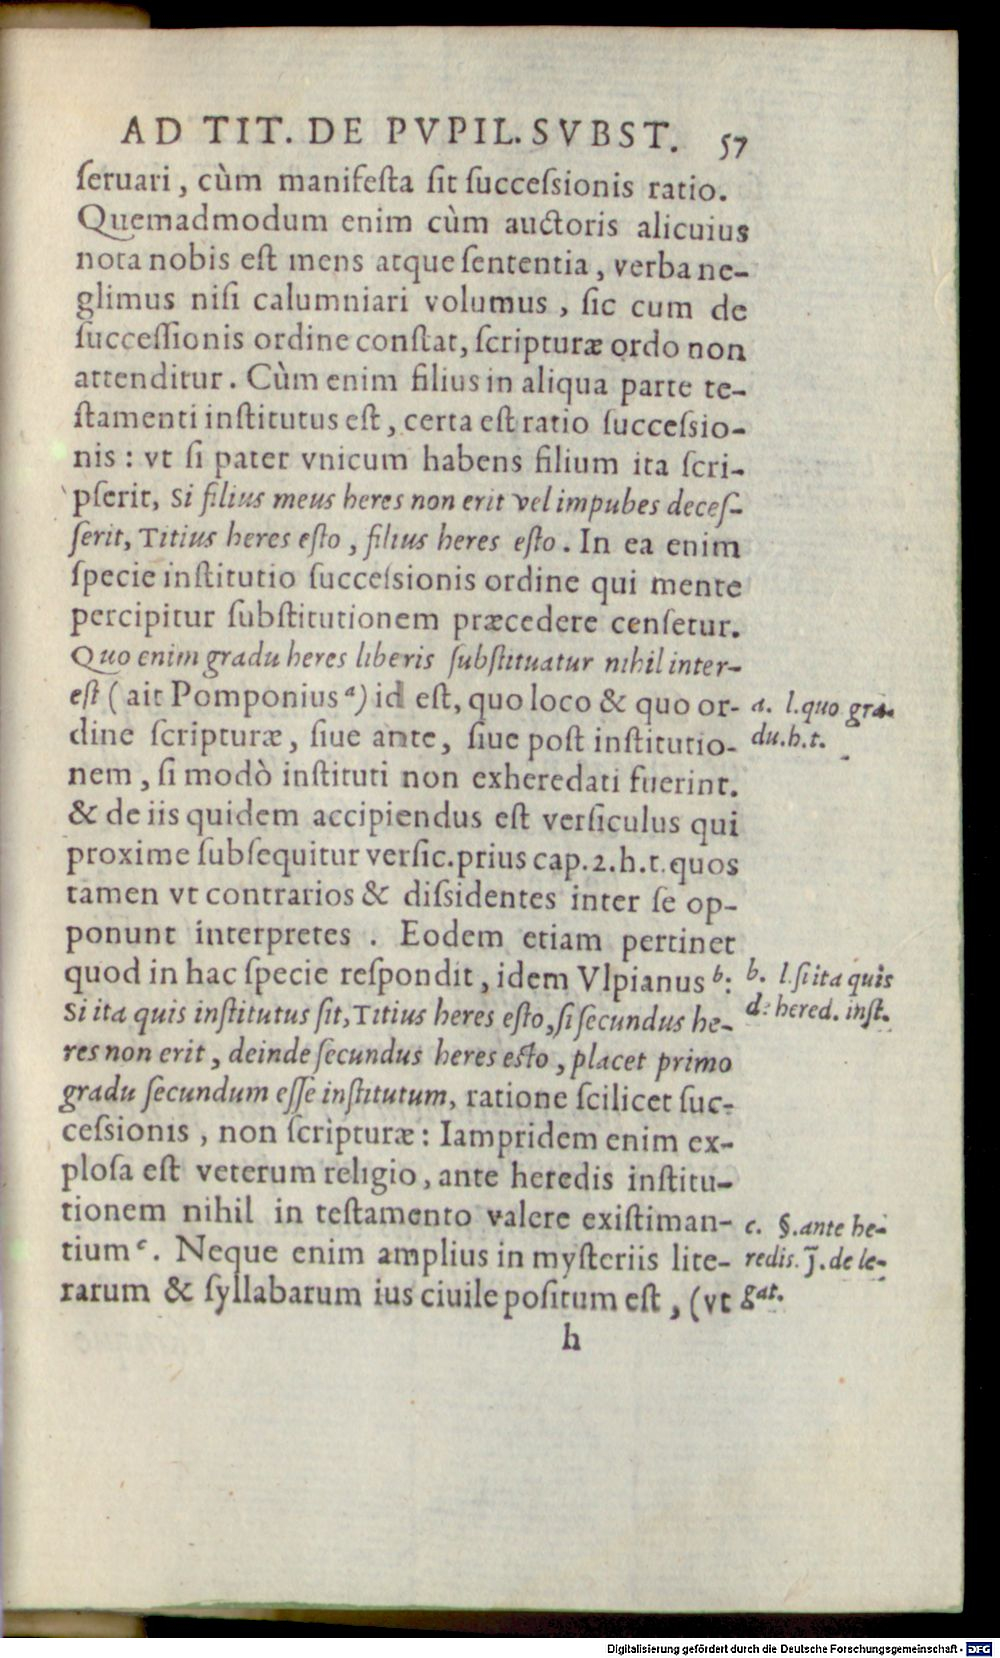 AD TIT. DE PVPIL. SVBST. 57
ſeruari, cùm manifeſta ſit ſucceſsionis ratio.
Quemadmodum enim cùm auctoris alicuius
nota nobis eſt mens atque ſententia, verba ne-
glimus niſi calumniari volumus, ſic cum de
ſucceſſionis ordine conſtat, ſcripturæ ordo non
attenditur. Cùm enim filius in aliqua parte te-
ſtamenti inſtitutus eſt, certa eſt ratio ſucceſsio-
nis: vt ſi pater vnicum habens filium ita ſcri-
pſerit, Si filius meus heres non erit vel impubes deceſ-
ſerit, Titius heres eſto, filius heres eſto. In ea enim
ſpecie inſtitutio ſucceſsionis ordine qui mente
percipitur ſubſtitutionem præcedere cenſetur.
Quo enim gradu heres liberis ſubſtituatur nihil inter-
eſt (ait Pomponius ᵃ) id eſt, quo loco & quo or-
dine ſcripturæ, ſiue ante, ſiue poſt inſtitutio-
nem, ſi modò inſtituti non exheredati fuerint.
& de iis quidem accipiendus eſt verſiculus qui
proxime ſubſequitur verſic. prius cap. 2. h. t. quos
tamen vt contrarios & diſsidentes inter ſe op-
ponunt interpretes. Eodem etiam pertinet
quod in hac ſpecie reſpondit, idem Vlpianus ᵇ:
Si ita quis inſtitutus ſit, Titius heres eſto, ſi ſecundus he-
res non erit, deinde ſecundus heres eſto, placet primo
gradu ſecundum eſſe inſtitutum, ratione ſcilicet ſuc-
ceſsionis, non ſcripturæ: Iampridem enim ex-
ploſa eſt veterum religio, ante heredis inſtitu-
tionem nihil in teſtamento valere exiſtiman-
tium ᶜ. Neque enim amplius in myſteriis lite-
rarum & ſyllabarum ius ciuile poſitum eſt, (vt
h
a. l. quo gra-
du. h. t.
b. l. ſi ita quis
d. hered. inſt.
c. §. ante he-
redis. J. de le-
gat.
Digitalisierung gefördert durch die Deutsche Forschungsgemeinschaft - DFG